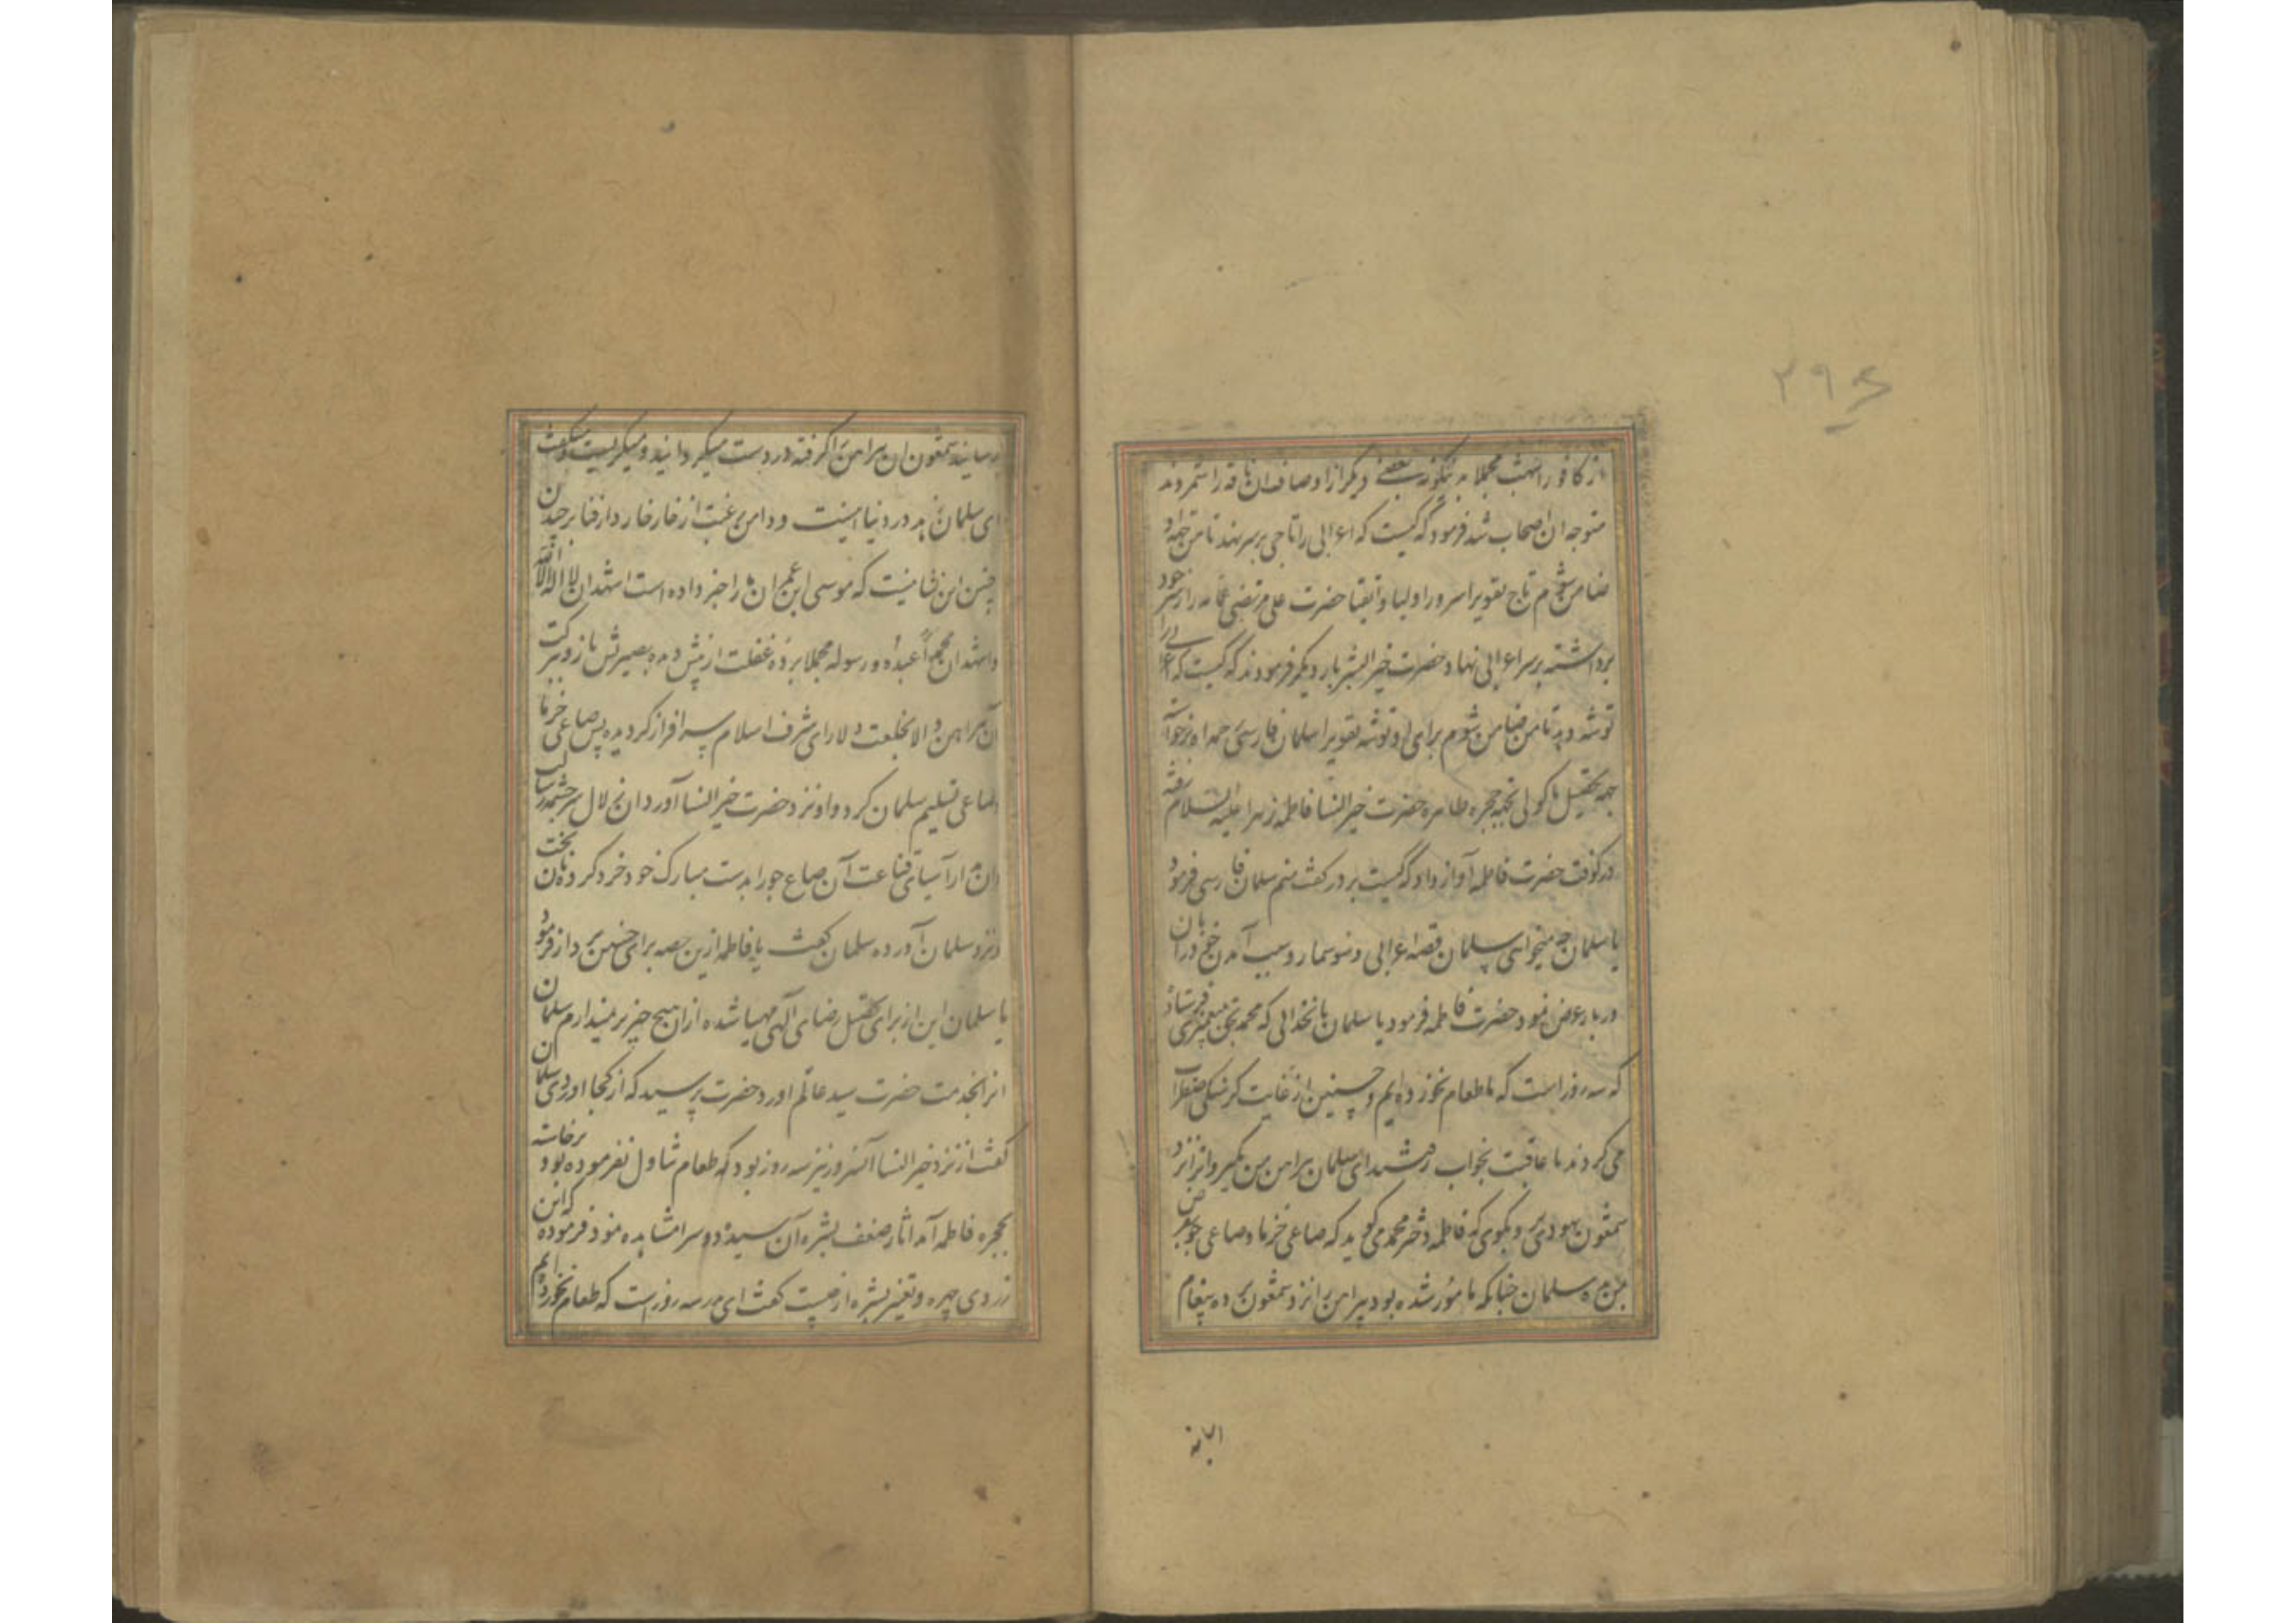 ۲۹۶
از کافور اشهب مجملا بدینگونه بعضی دیگر از اوصاف ان ناقه را شمردند
متوجه ان اصحاب شد فرمود که کیست که اعرابی را تاجی بر سر نهد تا من جهة او
ضامن شوم تاج تقویرا سرور اولیا و اتقیا حضرت علی مرتضی عمامه را از سر خود
برداشته بر سر اعرابی نهاد حضرت خیر البشر بار دیکر فرمودند که کیست که اعرابی را
توشه دهد تا من ضامن شوم برای او توشه تقویرا سلمان فارسی
جهة تحصیل ماکولی بحجره طاهره حضرت خیر النسا فاطمه زهرا علیه السلام رفته
در کوفت حضرت فاطمه آواز داد که کیست بر در کفت منم سلمان فارسی فرمود
یا سلمان چه میخواهی سلمان قصه اعرابی و سوسمار و سبب آمدن خود را بان
در بار عرض نمود حضرت فاطمه فرمود یا سلمان بانخدائی که محمد را بحق به پیغمبری فرستاد
که سه روز است که ما طعام نخورده ایم و حسنین از غایت کرسنکی اضطراب
می کردند تا عاقبت بخواب رفتند ای سلمان پیراهن من بکیر و انرا نزد
شمعون یهودی بر و بکوی که فاطمه دختر محمد می کوید که صاعی خرما و صاعی جو بقرض
بمن ده سلمان چنانکه مامور شده بود پیراهن را نزد شمعون برده پیغام
رسانید شمعون ان پیراهن را کرفته در دست میکردانید و میکریست و میکفت
ای سلمان زهد در دنیا اینست و دامن رغبت از خار خار دار فنا بر چیدن
چنین این نشانیست که موسی ابن عمران ما را خبر داده است اشهد ان لا اله الا الله
و اشهد ان محمداً عبده و رسوله مجملا پرده غفلت از پیش دیده بصیرتش باز و ببرکت
آن پیراهن والا بخلعت دلارای شرف اسلام سرافراز کردیده پس صاعی خرما
و صاعی تسلیم سلمان کرد و او نزد حضرت خیر النسا آورد ان زلال سرچشمه رسالت
آن صاع جو را بدست مبارک خود خرد کرده نان پخت
و نزد سلمان آورده سلمان کفت یا فاطمه ازین حصه برای حسنین بردار فرمود
یا سلمان این از برای تحصیل رضای آلهی مهیا شده ازان هیچ چیز بر نمیدارم سلمان ان
انرا بخدمت حضرت سید عالم اورد حضرت پرسید که از کجا اوردی سلمان
کفت از نزد خیر النسا آنسرور نیز سه روز بود که طعام تناول نفرموده بود برخاسته
بحجره فاطمه آمد اثار ضعف بشره آن سیده دو سرا مشاهده نمود فرموده که این
زردی چهره و تغیر بشره از چیست کفت ای پدر سه روز است که طعام نخورده ایم